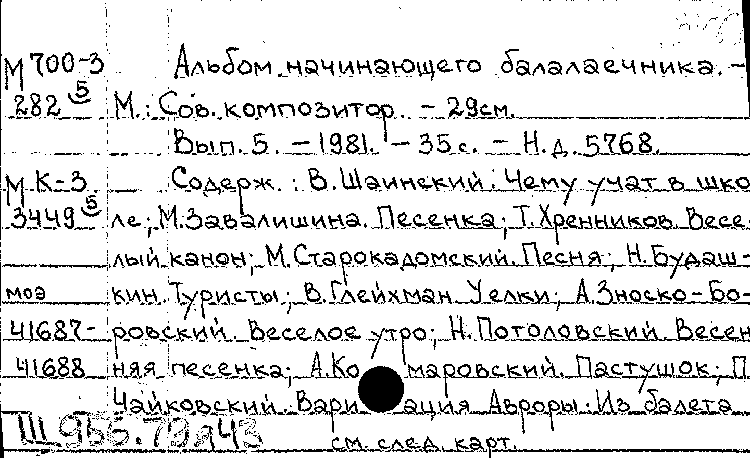 М700-3 Альбом начинающего балалаечника. –
282 5 М.: Сов. композитор. – 29см.
Вып. 5. – 1981. – 35 с. – Н.д. 5768.
М К-3 Содерж.: В. Шаинский. Чему учат в шко
3449 5 ле; М. Завалишина. Песенка; Т. Хренников. Весе-
лый канон; М. Старокадомский. Песня; Н. Будаш-
моэ кин. Туристы; В. Глейхман. Уелки; А. Зноско-Бо-
41687- ровский. Веселое утро; Н. Потоловский. Весен
41688 няя песенка; А. Ко маровский. Пастушок; П.
Чайковский. Вари ация Авроры: Из балета
Ш 956.79я43 см. след. карт.